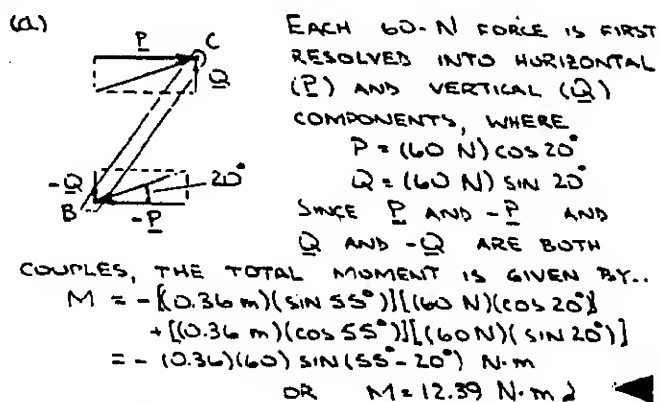 (a)
P
C
Q
-Q
20°
B
-P
EACH 60-N FORCE IS FIRST
RESOLVED INTO HORIZONTAL
(P) AND VERTICAL (Q)
COMPONENTS, WHERE
P = (60 N) cos 20°
Q = (60 N) SIN 20°
SINCE P AND -P AND
Q AND -Q ARE BOTH
COUPLES, THE TOTAL MOMENT IS GIVEN BY..
M = -[(0.36 m)(sin 55°)][(60 N)(cos 20°)]
+[(0.36 m)(cos 55°)][(60N)(SIN 20°)]
= -(0.36)(60) SIN(55°-20°) N·m
OR M = 12.39 N·m ↲